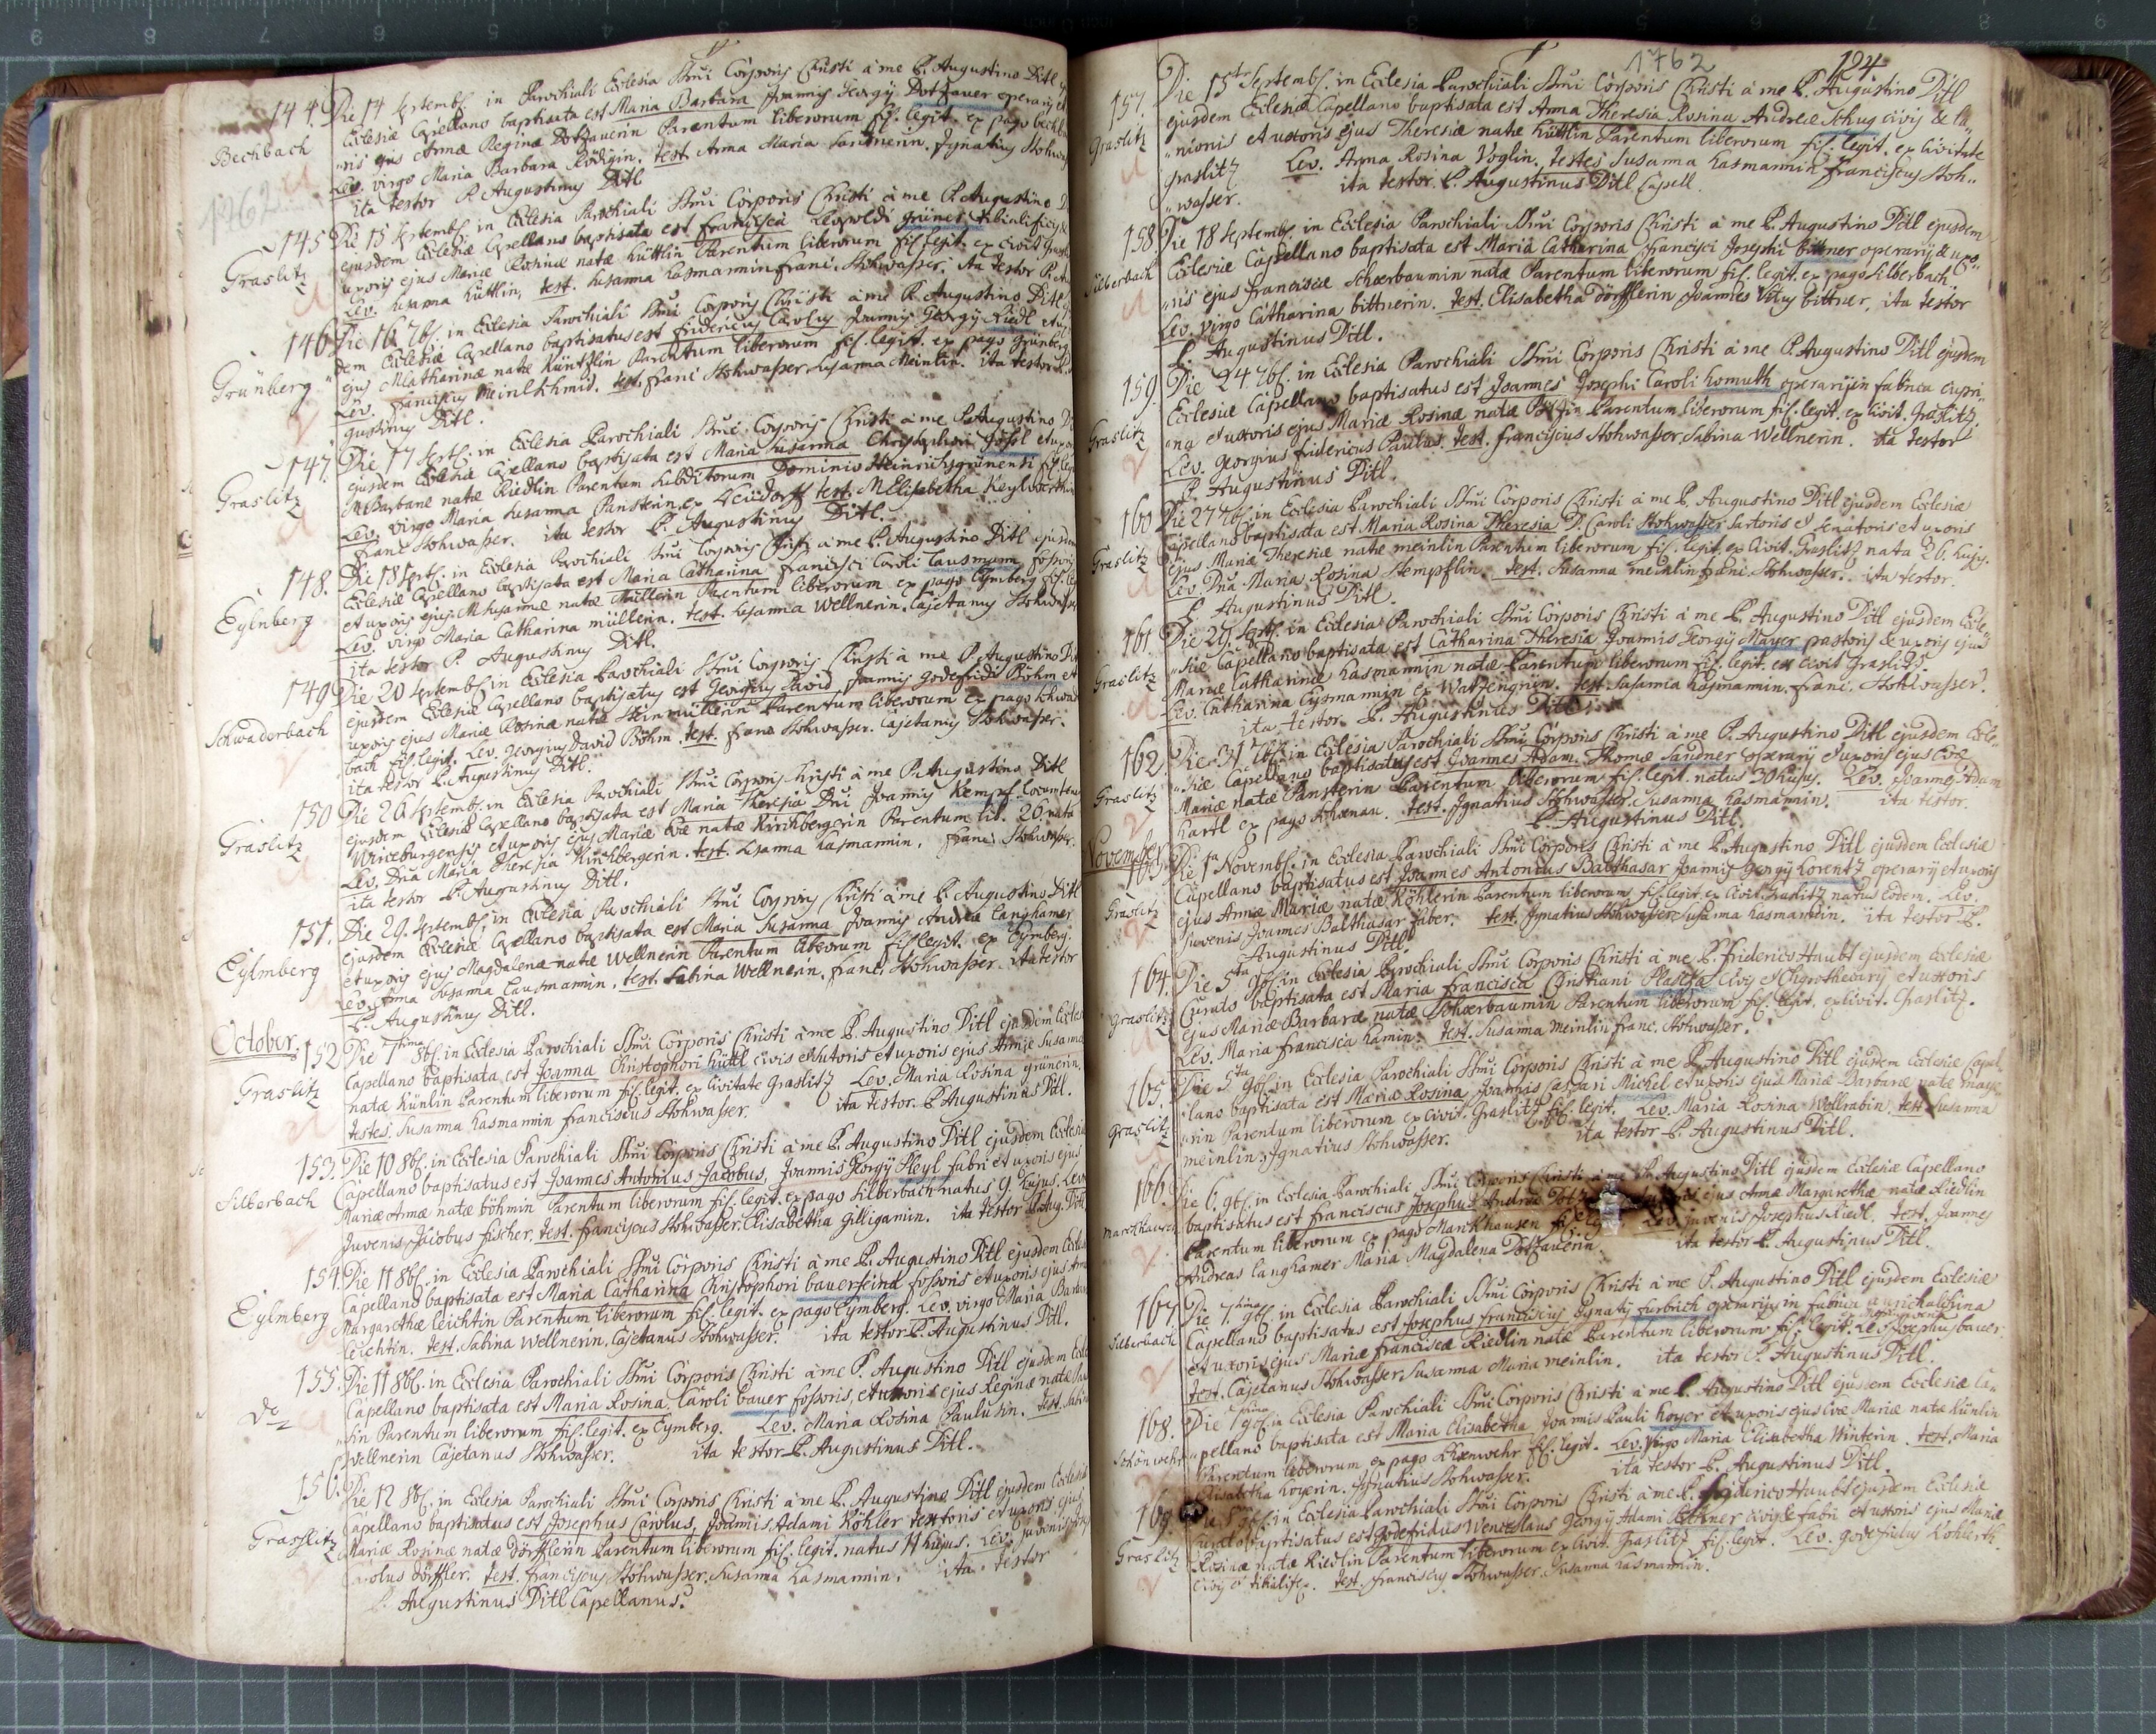 144. Die 14 Septemb. in Parochiali Ecclesia Ssmi Corporis Christi à me P. Augustino Ditl
Bechbach
Ecclesiæ Capellano baptisata est Maria Barbara Joannis Georgij Dotzauer operarij et
ris ejus Annæ Reginæ Dotzauerin Parentum liberorum fil. legit. ex pago
Lev. virgo Maria Barbara Rödigin. test. Anna Maria Sandnerin, Ignatius
ita testor P. Augustinus Ditl
1762
145 Die 15 Septemb. in Ecclesia Parochiali Ssmi Corporis Christi à me P. Augustino
Graslitz
ejusdem Ecclesiæ Capellano baptisata est Francisca Leopoldi grüner tibialificis
uxoris ejus Mariæ Rosinæ natæ Hüttlin Parentum liberorum fil. legit. ex Civit.
Lev. Susanna Hüttlin, test. Susanna Kasmannin Franc. Stohwasser. ita testor P.
146 Die 16 7b. in Ecclesia Parochiali Ssmi Corporis Christi à me P. Augustino Ditl
Grünberg
dem Ecclesiæ Capellano baptisatus est Fridericus Carolus Joannis Georgij Riedl et
ejus MCatharinæ natæ Küntzlin Parentum liberorum fil. legit. ex pago Grünberg
Lev. Franciscus Meinlschmid. test. Franc Stohwasser, Susanna Meinlin. ita testor
gustinus Ditl.
147. Die 17 Septb. in Ecclesia Parochiali Ssmi Corporis Christi à me P. Augustino
Graslitz
ejusdem Ecclesiæ Capellano baptisata est Maria Susanna Christophori
MBarbaræ natæ Riedlin Parentum Subditorum Dominio Heinrichsgrünensi fil.
Lev. virgo Maria Susanna test. MElisabetha
Franc Stohwasser. ita testor P. Augustinus Ditl.
148. Die 18 Septb. in Ecclesia Parochiali Ssmi Corporis Christi à me P. Augustino Ditl
Eylnberg
Ecclesiæ Capellano baptisata est Maria Catharina Francisci Caroli Lausmann
et uxoris ejus MSusannæ natæ Müllerin Parentum liberorum ex pago Eymberg fil.
Lev. virgo Maria Catharina müllerin. test. Susanna Wellnerin. Cajetanus
ita testor P. Augustinus Ditl.
149 Die 20 Septemb. in Ecclesia Parochiali Ssmi Corporis Christi à me P. Augustino
Schwaderbach
ejusdem Ecclesiæ Capellano baptisatus est Georgius David Joannis Godefridi Böhm et
uxoris ejus Mariæ Rosinæ natæ Steinmüllerin Parentum liberorum ex pago
bach fil. legit. Lev. Georgius David Böhm. test. Franc Stohwasser. Cajetanus Stohwasser.
ita testor P. Augustinus Ditl.
150 Die 26 Septemb. in Ecclesia Parochiali Ssmi Corporis Christi à me P. Augustino Ditl
Graslitz
ejusdem Ecclesiæ Capellano baptisata est Maria Theresia Dni Joannis Kempf
Wirceburgensis et uxoris ejus Mariæ Evæ natæ Kirchbergerin Parentum lib. 26 nata
Lev. Dna Maria Theresia Kirchbergerin. test. Susanna Kasmannin. Franc. Stohwasser.
ita testor P. Augustinus Ditl.
151. Die 29. Septemb. in Ecclesia Parochiali Ssmi Corporis Christi à me P. Augustino Ditl
Eylmberg
ejusdem Ecclesiæ Capellano baptisata est Maria Susanna Joannis Andreæ Langhamer
et uxoris ejus Magdalenæ natæ Wellnerin Parentum liberorum fil legit. ex Eymberg.
Lev. Anna Susanna Lausmanin. test. Sabina Wellnerin, Franc. Stohwasser. ita testor
P. Augustinus Ditl.
October.
152 Die 7tima 8b. in Ecclesia Parochiali Ssmi Corporis Christi à me P. Augustino Ditl ejusdem
Graslitz
Capellano baptisata est Joanna Christophori Hüttl civis et Sutoris et uxoris ejus Annæ Susannæ
natæ Künlin Parentum liberorum fil. legit. ex Civitate Graslitz Lev. Maria Rosina grünerin.
testes. Susanna Kasmannin Franciscus Stohwasser. ita testor P. Augustinus Ditl.
153. Die 10 8b. in Ecclesia Parochiali Ssmi Corporis Christi à me P. Augustino Ditl ejusdem
Silberbach
Capellano baptisatus est Joannes Antonius Jacobus, Joannis Georgij Heyl fabri et uxoris ejus
Mariæ Annæ natæ böhmin Parentum liberorum fil. legit. ex pago Silberbach natus 9 hujus. Lev.
Juvenis Jacobus fischer. test. Franciscus Stohwasser. Elisabetha Gilligamin. ita testor
154 Die 11 8b. in Ecclesia Parochiali Ssmi Corporis Christi à me P. Augustino Ditl ejusdem
Eylmberg
Capellano baptisata est Maria Catharina Christophori bauerfeind fossoris et uxoris ejus
Margarethæ Leichtin Parentum liberorum fil. legit. ex pago Eymberg. Lev. virgo Maria
Leichtin. test. Sabina Wellnerin, Cajetanus Stohwasser. ita testor P. Augustinus Ditl.
155. Die 11 8b. in Ecclesia Parochiali Ssmi Corporis Christi à me P. Augustino Ditl ejusdem
Capellano baptisata est Maria Rosina Caroli bauer fossoris, et uxoris ejus Reginæ natæ
lin Parentum liberorum fil. legit. ex Eymberg. Lev. Maria Rosina Paulusin. test.
Wellnerin Cajetanus Stohwasser. ita testor P. Augustinus Ditl.
156. Die 12 8b. in Ecclesia Parochiali Ssmi Corporis Christi à me P. Augustino Ditl ejusdem
Grasslitz
Capellano baptisatus est Josephus Carolus, Joannis Adami Köhler textoris et uxoris ejus
Mariæ Rosinæ natæ Dörfflerin Parentum liberorum fil. legit. natus 11 hujus. Lev. juvenis
Carolus Dörffler. test. Franciscus Stohwasser. Susanna Kasmannin. ita testor
P. Augustinus Ditl Capellanus.
1762
124
157. Die 15 Septemb. in Ecclesia Parochiali Ssmi Corporis Christi à me P. Augustino Ditl
Graslitz
ejusdem Ecclesiæ Capellano baptisata est Anna Theresia Rosina Andreæ Schug civis & la„
„nionis et uxoris ejus Theresiæ natæ Hüttlin Parentum liberorum fil. legit. ex Civitate
Graslitz Lev. Anna Rosina Voglin. testes Susanna Kasmannin Franciscus Stoh„
„wasser. ita testor. P. Augustinus Ditl Capell.
158. Die 18 Septemb. in Ecclesia Parochiali Ssmi Corporis Christi à me P. Augustino Ditl ejusdem
Silberbach
Ecclesiæ Capellano baptisata est Maria Catharina Francisci Josephi bittner operarij & uxo„
„ris ejus Franciscæ Scherbaumin natæ Parentum liberorum fil. legit. ex pago Silberbach.
Lev. virgo Catharina bittnerin. test. Elisabetha Dörfflerin Joannes Vitus bittner, ita testor
P. Augustinus Ditl.
159. Die 24 7b. in Ecclesia Parochiali Ssmi Corporis Christi à me P. Augustino Ditl ejusdem
Graslitz
Ecclesiæ Capellano baptisatus est Joannes Josephi Caroli Komuth operarij in fabrica cupri„
na et uxoris ejus Mariæ Rosinæ natæ Parentum liberorum fil. legit. ex Civit. Graslitz.
Lev. Georgius Fridericus Paulus. test. Franciscus Stohwasser, Sabina Wellnerin. ita testor
P. Augustinus Ditl.
160 Die 27 7b. in Ecclesia Parochiali Ssmi Corporis Christi à me P. Augustino Ditl ejusdem Ecclesiæ
Graslitz
Capellano baptisata est Maria Rosina Theresia D. Caroli Stohwasser Sartoris & Senatoris et uxoris
ejus Mariæ Theresiæ natæ meinlin Parentum liberorum fil. legit. ex Civit. Graslitz nata 26 hujus.
Lev. Dna Maria Rosina Stempflin. test. Susanna meinlin, Franc. Stohwasser. ita testor.
P. Augustinus Ditl.
161. Die 29 Septb. in Ecclesia Parochiali Ssmi Corporis Christi à me P. Augustino Ditl ejusdem Eccle„
Graslitz
„siæ Capellano baptisata est Catharina Theresia Joannis Georgij Mayer pastoris & uxoris ejus
Mariæ Catharinæ Kasmannin natæ Parentum liberorum fil. legit. ex Civit Graslitz.
Lev. Catharina ex Watzengrün. test. Susanna Kasmannin. Franc. Stohwasser.
ita testor P. Augustinus Ditl.
162. Die 31 in Ecclesia Parochiali Ssmi Corporis Christi à me P. Augustino Ditl ejusdem Eccle„
Graslitz
„siæ Capellano baptisatus est Joannes Adam Thomæ Sandner operarij et uxoris ejus Evæ
Mariæ natæ Pansterin Parentum liberorum fil. legit. natus 30 hujus. Lev. Joannes Adam
Hartl ex pago Schönau. test. Ignatius Stohwasser. Susanna Kasmannin. ita testor
P. Augustinus Ditl.
November.
163. Die 1ma Novemb. in Ecclesia Parochiali Ssmi Corporis Christi à me P. Augustino Ditl ejusdem Ecclesiæ
Graslitz
Capellano baptisatus est Joannes Antonius Balthasar Joannis Georgij Lorentz operarij et uxoris
ejus Annæ Mariæ natæ Köhlerin Parentum liberorum fil. legit. ex Civit. Graslitz natus eodem. Lev.
juvenis Joannes Balthasar faber. test. Ignatius Stohwasser Susanna Kasmannin. ita testor P.
Augustinus Ditl.
164. Die 5ta 9b. in Ecclesia Parochiali Ssmi Corporis Christi à me P. Friderico Haubt ejusdem Ecclesiæ
Graslitz
Curato baptisata est Maria Francisca Christiani Plaschka civis et Chyrothecarij et uxoris
ejus Mariæ Barbaræ natæ Scherbaumin Parentum liberorum fil. legit. ex Civit. Graslitz.
Lev. Maria Francisca Hamin. test. Susanna Meinlin Franc. Stohwasser.
165. Die 5ta 9b. in Ecclesia Parochiali Ssmi Corporis Christi à me P. Augustino Ditl ejusdem Ecclesiæ Capel„
Graslitz
„lano baptisata est Maria Rosina Joannis Caspari Michel et uxoris ejus Mariæ Barbaræ natæ
rin Parentum liberorum ex civit. Graslitz fil. legit. Lev. Maria Rosina Wellrabin test Susanna
meinlin, Ignatius Stohwasser. ita testor P. Augustinus Ditl.
166. Die 6. 9b. in Ecclesia Parochiali Ssmi Corporis Christi à me P. Augustino Ditl ejusdem Ecclesiæ Capellano
Marckhausen
baptisatus est Franciscus Josephus Andreæ ejus Annæ Margarethæ natæ Riedlin
Parentum liberorum ex pago Marckhausen Lev. juvenis Josephus Riedl. test. Joannes
Andreas Langhamer Maria Magdalena Dotzauerin. ita testor P. Augustinus Ditl.
167. Die 7tima 9b. in Ecclesia Parochiali Ssmi Corporis Christi à me P. Augustino Ditl ejusdem Ecclesiæ
Silberbach
Capellano baptisatus est Josephus Franciscus Ignatij furbrich operarij in fabrica aurichalchina
et uxoris ejus Mariæ Franciscæ Riedlin natæ Parentum liberorum fil. legit. Lev. Josephus bauer
test. Cajetanus Stohwasser, Susanna Maria meinlin. ita testor P. Augustinus Ditl.
168. Die 7tima 9b. in Ecclesia Parochiali Ssmi Corporis Christi à me P. Augustino Ditl ejusdem Ecclesiæ Ca„
Schönwehr
„pellano baptisata est Maria Elisabetha Joannis Pauli Hoyer et uxoris ejus Evæ Mariæ natæ Künlin
Parentum liberorum ex pago Schönwehr fil. legit. Lev. virgo Maria Elisabetha Winterin. test. Maria
Elisabetha Hoyerin. Ignatius Stohwasser. ita testor P. Augustinus Ditl.
169. 9b. in Ecclesia Parochiali Ssmi Corporis Christi à me P. Friderico Haubt ejusdem Ecclesiæ
Graslitz
baptisatus est Godefridus Wenceslaus Georgij Adami civis & fabri et uxoris ejus Mariæ
Rosinæ natæ Riedlin Parentum liberorum ex Civit. Graslitz fil. legit. Lev. Godefridus
civis & tibialifex. test. Franciscus Stohwasser, Susanna Kasmannin.